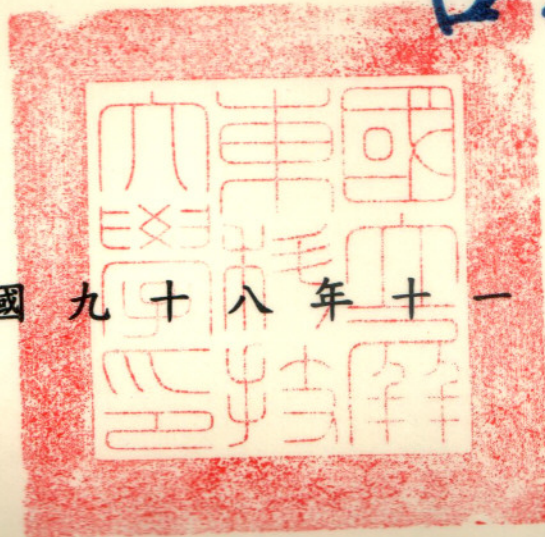 國立屏
東科技
大學印
國九十八年十一